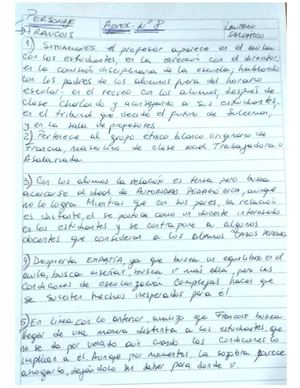 PERSONAJE
APREC. Nº 8
LAUTARO
SALVATICO
FRANCOIS
1) SITUACIONES: el profesor aparece en el aula
con los estudiantes, en la dirección con el director,
en la comisión disciplinaria de la escuela, hablando
con los padres de los alumnos fuera del horario
escolar, en el recreo con los alumnos, después de
clase charlando y aconsejando a sus estudiantes,
en el tribunal que decidió el futuro de Suleiman,
y en la sala de profesores.
2) Pertenece al grupo étnico blanco originario de
Francia, masculino de clase social Trabajadora o
Asalariada.
3) Con los alumnos la relación es tensa pero busca
acercarse al ideal de AUTORIDAD PEDAGÓGICA, aunque
no lo logra. Mientras que con sus pares, la relación
es distante, el se postula como un docente interesado
en los estudiantes y se contrapone a algunos
docentes que consideran a los alumnos CASOS PERDIDOS
4) Despierta EMPATÍA, ya que busca un equilibrio en el
aula, busca enseñar, busca ir más allá, pero las
condiciones de escolarización complejas hacen que
se susciten hechos inesperados para el.
5) En línea con lo anterior, analizo que Francois busca
llegar de una manera distinta a los estudiantes, que
no se da por vencido aún cuando las condiciones lo
implican a él. Aunque por momentos, la sozobra parece
ahogarlo, dejándolo sin saber para donde ir.